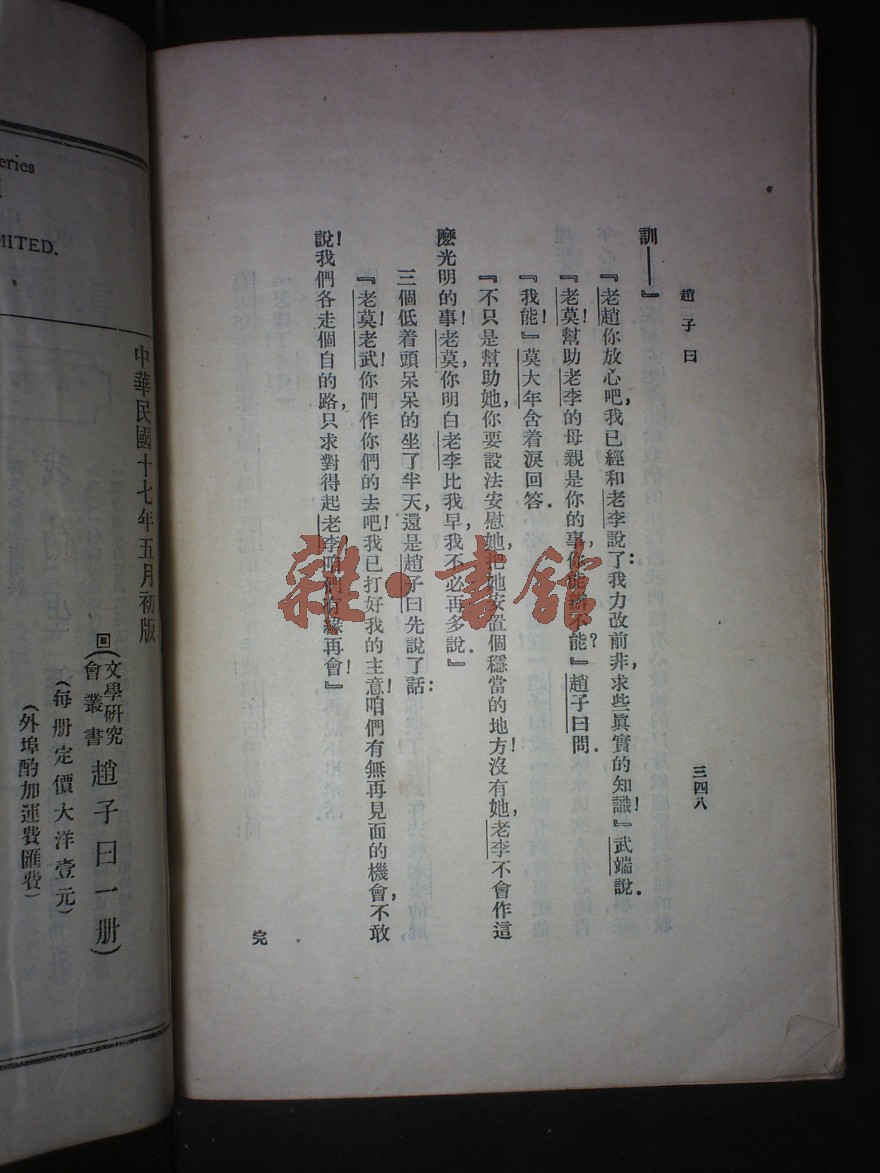 趙子曰
三四八
訓——』
『老趙你放心吧,我已經和老李說了:我力改前非,求些眞實的知識!』武端說.
『老莫!幫助老李的母親是你的事,你能辦不能?』趙子曰問.
『我能!』莫大年含着淚回答.
『不只是幫助她,你要設法安慰她,把她安置個穩當的地方!沒有她,老李不會作這
麼光明的事!老莫,你明白老李比我早,我不必再多說.』
三個低着頭呆呆的坐了半天,還是趙子曰先說了話:
『老莫!老武!你們作你們的去吧!我已打好我的主意!咱們有無再見面的機會,不敢
說!我們各走個自的路,只求對得起老李!咱們有緣再會!』
完
中華民國十七年五月初版
回(文學研究會叢書趙子曰一册)
(每册定價大洋壹元)
(外埠酌加運費匯費)
eries
MITED.
雜·書館